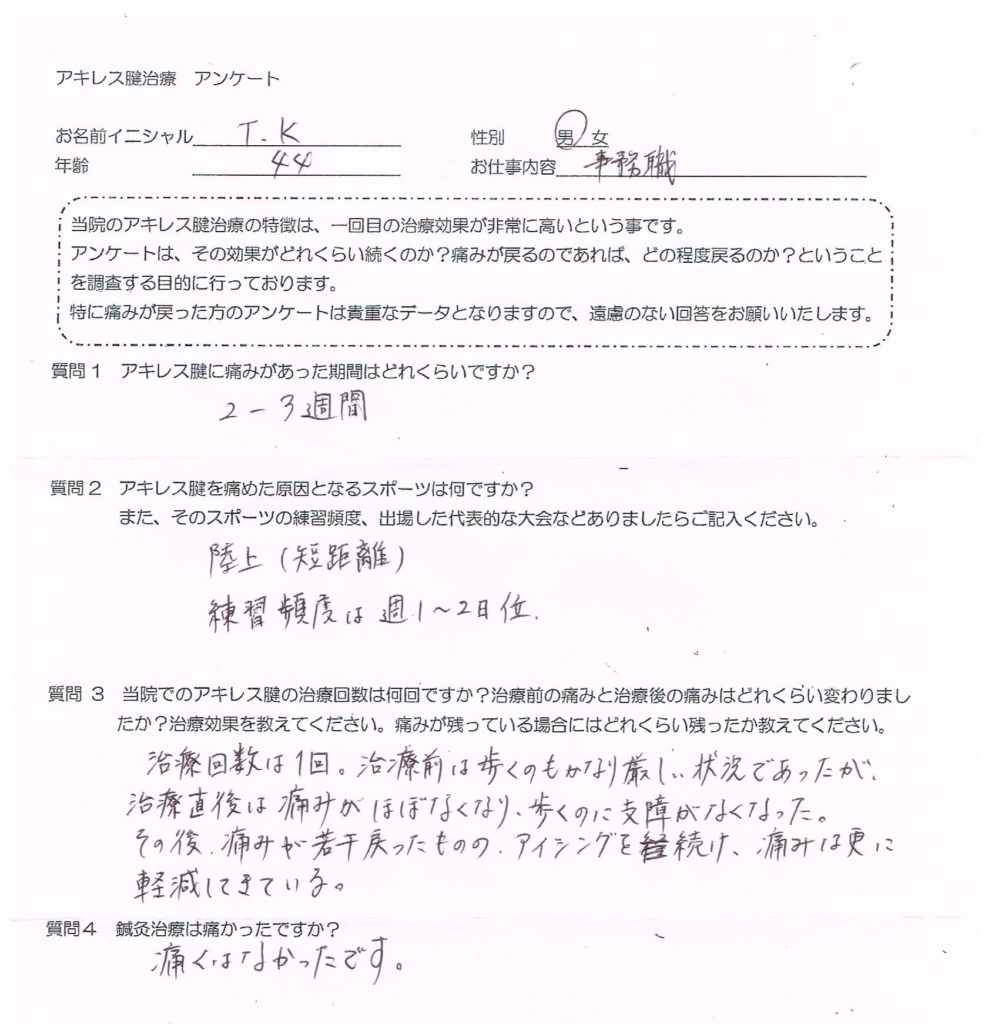 アキレス腱治療　アンケート
お名前イニシャル T.K 性別 男 女
年齢 44 お仕事内容 事務職
当院のアキレス腱治療の特徴は、一回目の治療効果が非常に高いという事です。
アンケートは、その効果がどれくらい続くのか？痛みが戻るのであれば、どの程度戻るのか？ということ
を調査する目的に行っております。
特に痛みが戻った方のアンケートは貴重なデータとなりますので、遠慮のない回答をお願いいたします。
質問1　アキレス腱に痛みがあった期間はどれくらいですか？
2－3週間
質問2　アキレス腱を痛めた原因となるスポーツは何ですか？
また、そのスポーツの練習頻度、出場した代表的な大会などありましたらご記入ください。
陸上(短距離)
練習頻度は週1～2日位.
質問 3　当院でのアキレス腱の治療回数は何回ですか？治療前の痛みと治療後の痛みはどれくらい変わりまし
たか？治療効果を教えてください。痛みが残っている場合にはどれくらい残ったか教えてください。
治療回数は1回。治療前は歩くのもかなり厳しい状況であったが、
治療直後は痛みがほぼなくなり、歩くのに支障がなくなった。
その後、痛みが若干戻ったものの、アイシングを続け、痛みは更に
軽減してきている。
質問4　鍼灸治療は痛かったですか？
痛くはなかったです。